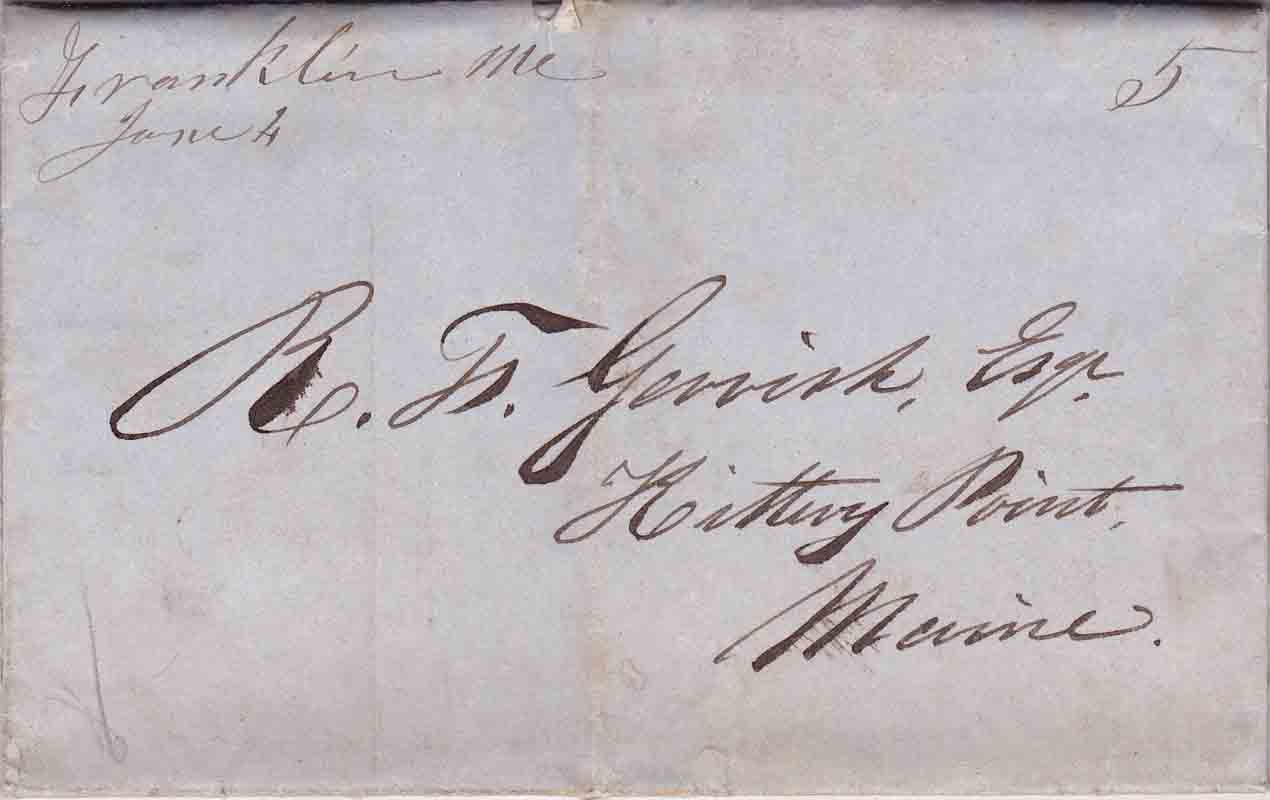 Franklin Me
June 4
5
R. F. Gerrish, Esqr.
Kittery Point,
Maine.